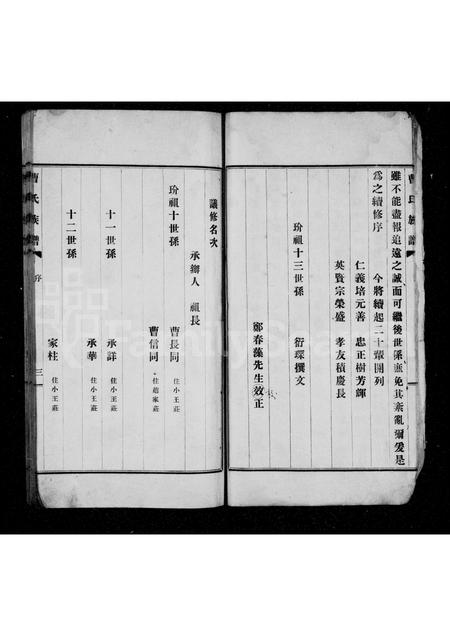 曹氏族譜
雖不能盡報追遠之誠而可繼後世係庶免其紊亂爾爰是
為之續修序
今將續起二十輩開列
仁義培元善 忠正樹芳輝
英賢宗榮盛 孝友積慶長
玢祖十三世孫 衍琛撰文
鄒春藻先生效正
議修名次
承辦人 祖長
玢祖十世孫 曹長同 住小王莊
曹信同 住趙家莊
十一世孫 承詳 住小王莊
承華 住小王莊
十二世孫 家柱 住小王莊
曹氏族譜 序 三